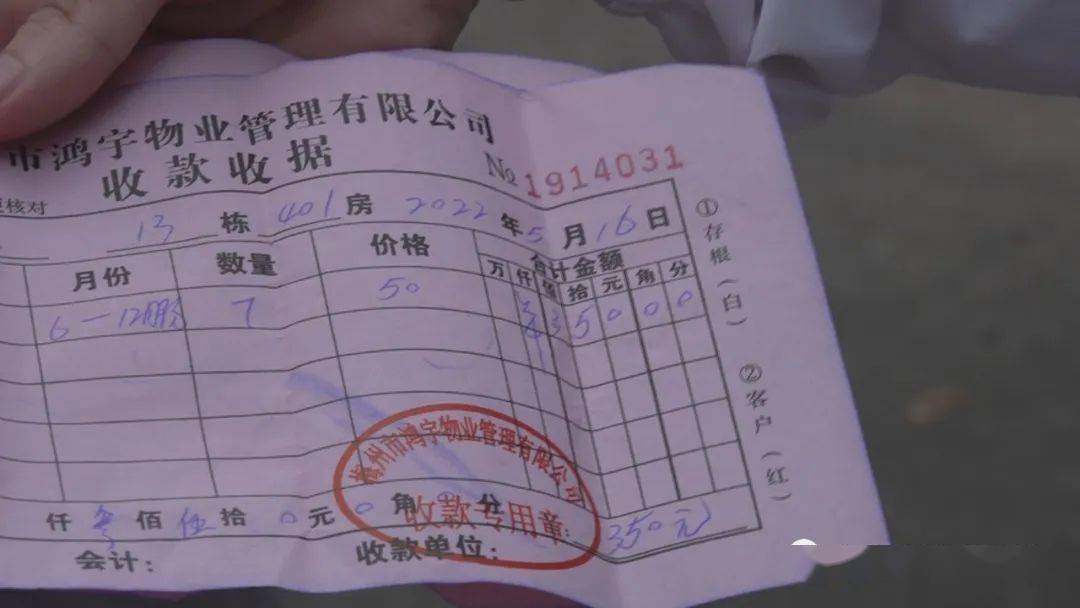 市鸿宇物业管理有限公司
收款收据
№ 1914031
核对
13 栋 401 房 2022 年 5 月 16 日
月份 数量 价格 合计金额
万 仟 佰 拾 元 角 分
6-12月 7 50 3 5 0 0 0
仟 叁 佰 伍 拾 0 元 0 角 0 分 350元
会计: 收款单位:
梅州市鸿宇物业管理有限公司
收款专用章
①存根(白) ②客户(红)